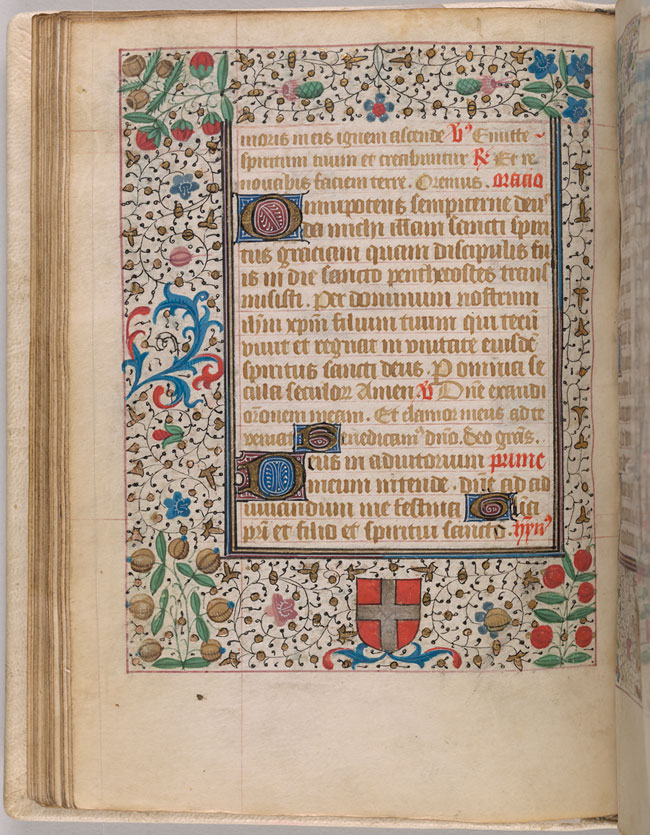 moris in eis ignem ascende V̓ Emitte
spiritum tuum et creabuntur R̓ Et re
novabis faciem terre. Oremus. oratio
Omnipotens sempiterne deus
da michi illam sancti spiri
tus graciam quam discipulis tu
is in die sancto penthecostes trans
misisti. Per dominum nostrum
ihm xpm filium tuum qui tecū
vivit et regnat in unitate eiusdē
spiritus sancti deus. Per omnia se
cula seculoꝝ Amen V̓ Dn̄e exaudi
or̄onem meam. Et clamor meus ad te
veniat Benedicam⁹ dn̄o. Deo grās.
Deus in adiutorium prime
meum intende. dn̄e ad ad
iuvandum me festina Glīa
pr̄i et filio et spiritui sancto. hȳn⁹